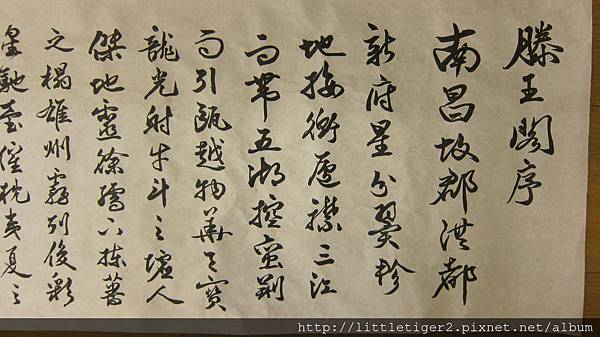 滕王閣序
南昌故郡洪都
新府星分翼軫
地接衡廬襟三江
而帶五湖控蛮荆
而引甌越物華天寶
龍光射牛斗之墟人
傑地靈徐孺下陳蕃
之榻雄州霧列俊彩
星馳臺隍枕夷夏之
http://littletiger2.pixnet.net/album